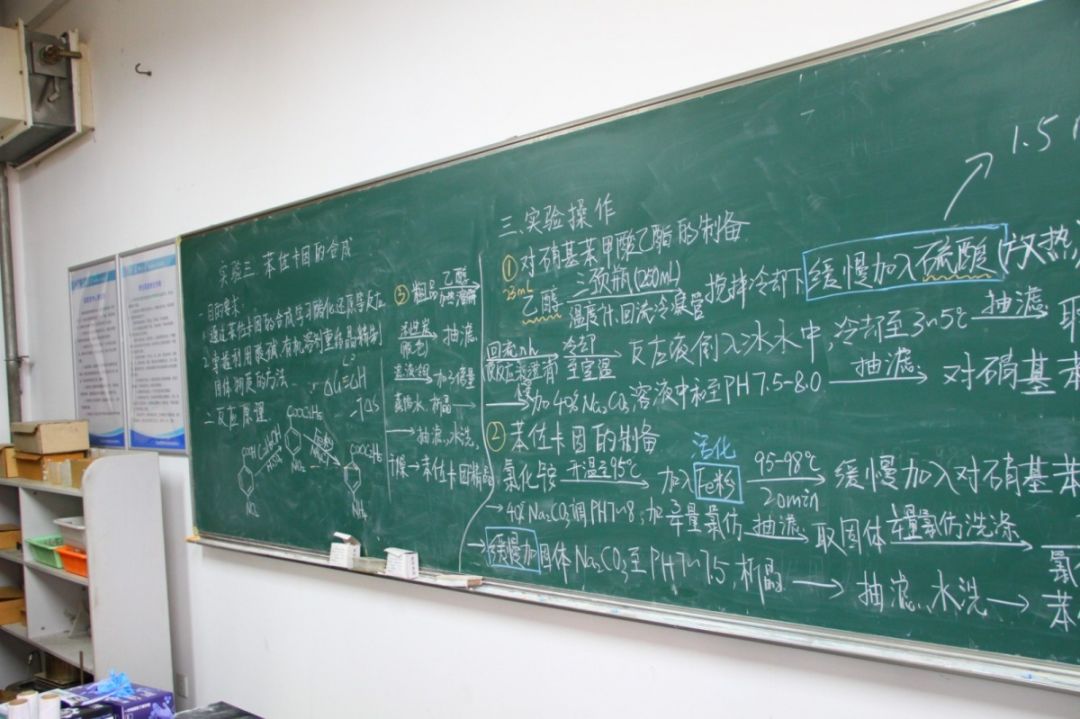 实验三 苯佐卡因的合成
一.目的要求
1.通过苯佐卡因的合成学习酯化,还原等反应
2.掌握利用酸碱,有机溶剂重结晶精制
固体物质的方法
二.反应原理
COOH
C₂H₅OH
H₂SO₄
NO₂
COOC₂H₅
NO₂
COOC₂H₅
NH₂
③ 粗品 乙醇
抽滤
加3倍量
蒸馏水,析晶
→抽滤,水洗,
干燥→苯佐卡因精品
三.实验操作
① 对硝基苯甲酸乙酯的制备
乙醇 三颈瓶(250mL) 搅拌冷却下 缓慢加入硫酸(放热)
温度计,回流冷凝管
1.5
冷却 至室温 反应液倒入冰水中,冷却至3~5℃ 抽滤 取
加40% Na₂CO₃溶液中和至PH7.5-8.0 抽滤 对硝基苯
② 苯佐卡因的制备
活化
氯化铵 升温至95℃ 加入 Fe粉 95-98℃ 20min 缓慢加入对硝基苯
→40% Na₂CO₃调PH7~8,加 氯仿 抽滤 取固体 氯仿洗涤
→缓慢加固体Na₂CO₃至PH7~7.5 析晶 → 抽滤,水洗 → 苯